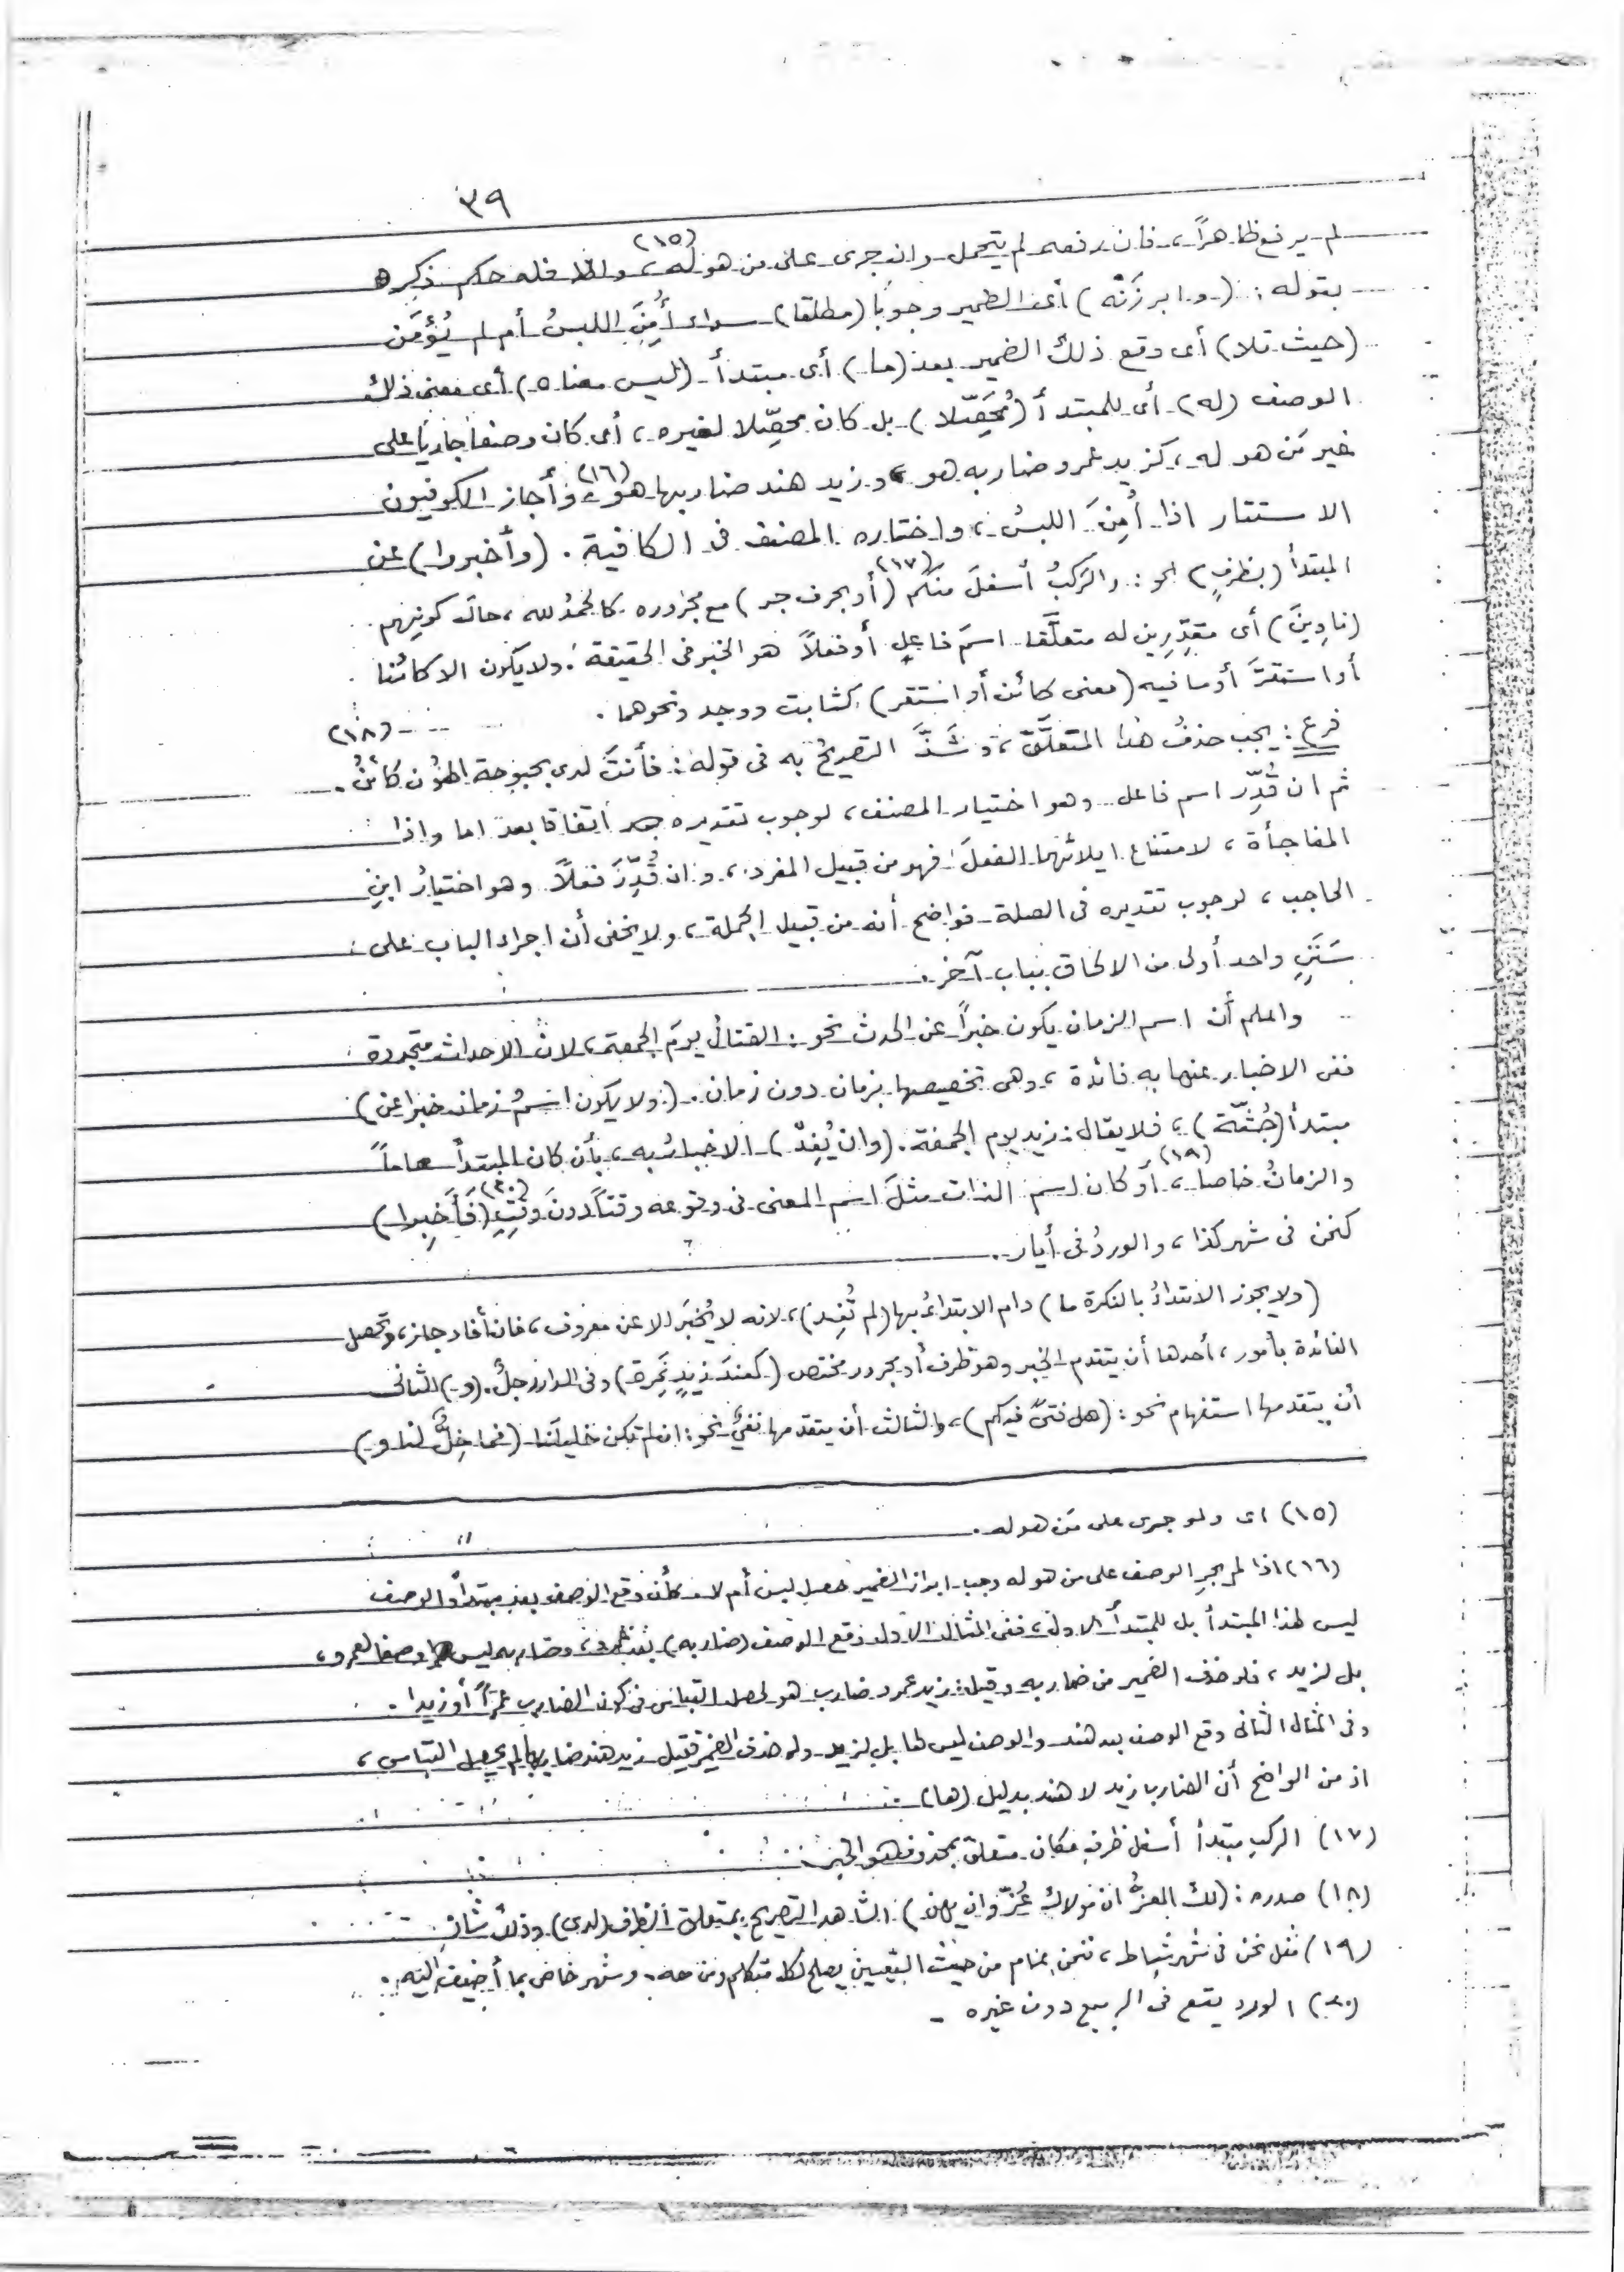 ٣٩
لم يرفع ظاهراً، فان رفعه لم يتحمل وان جرى على من هو له (١٥)، والا فله حكم ذكره
بقوله: (وابرزَنْه) أى الضمير وجوبًا (مطلقا) سواء أُمِنَ اللبسُ أم لم يُؤمَن
(حيث تلا) أى وقع ذلك الضمير بعد (ما) أى مبتدأ (ليس معناه) أى معنى ذلك
الوصف (له) أى للمبتدأ (مُحَصَّلا) بل كان محصّلا لغيره، أى كان وصفا جاريًا على
غير مَن هو له، كزيد عمرو ضاربه هو، وزيد هند ضاربها هو (١٦)، وأجاز الكوفيون
الاستتار اذا أُمِنَ اللبسُ، واختاره المصنف فى الكافية. (وأخبروا) عن
المبتدأ (بظرفٍ) نحو: والركبُ أسفلَ منكم (١٧) (أو بحرف جر) مع مجروره كالحمدُ لله، حال كونهم
(ناوِينَ) أى مقدِّرِين له متعلَّقا اسمَ فاعلٍ أو فعلاً هو الخبر فى الحقيقة. ولا يكون الا كائنا
أو استقرَّ أو ما فيه (معنى كائن أو استقر) كثابت ووجد ونحوهما.
فرع: يجب حذفُ هذا المتعلَّق، وشَذَّ التصريحُ به فى قوله: فأنتَ لدى بحبوحة الهُون كائنُ. (١٨)
ثم ان قُدِّر اسم فاعل وهو اختيار المصنف، لوجوب تقديره اتفاقا بعد اما واذا
المفاجأة، لامتناع ايلائهما الفعلَ فهو من قبيل المفرد، وان قُدِّرَ فعلاً وهو اختيارُ ابنِ
الحاجب، لوجوب تقديره فى الصلة فواضح أنه من قبيل الجملة، ولا يخفى أن اجراء الباب على
سَنَنٍ واحد أولى من الالحاق بباب آخر.
واعلم أن اسم الزمان يكون خبراً عن الحدث نحو: القتالُ يومَ الجمعة، لان الاحداث متجددة
ففى الاخبار عنها به فائدة، وهى تخصيصها بزمان دون زمان. (ولا يكون اسمُ زمان خبرا عن)
مبتدأ (جُثّة)، فلا يقال: زيد يوم الجمعة. (وان يُفِدْ) الاخبارُ به، بأن كان المبتدأ عاماً
والزمانُ خاصا (١٩)، أو كان اسم الذات مثلَ اسم المعنى فى وقوعه وقتاً دونَ وقتٍ (٢٠) (فَأَخبِرا)
كنحن فى شهر كذا، والوردُ فى أيار.
(ولا يجوز الابتداءُ بالنكرة ما) دام الابتداءُ بها (لم تُفِد)، لانه لا يُخبَر الا عن معروف، فان أفاد جاز، وتحصل
الفائدة بأمور، أحدها أن يتقدم الخبر وهو ظرف أو مجرور مختص (كعندَ زيدٍ نَمِرة) وفى الدار رجلٌ. (و) الثانى
أن يتقدمها استفهام نحو: (هل فتىً فيكم)، والثالث أن يتقدمها نفىٌ نحو: ان لم تكن خليلَنا (فما خِلٌّ لنا و)
(١٥) اى ولو جرى على مَن هو له.
(١٦) اذا لم يجرِ الوصف على من هو له وجب ابراز الضمير حصل لبس أم لا. كأن وقع الوصف بعد مبتدأ والوصف
ليس لهذا المبتدأ بل للمبتدأ الاول، ففى المثال الاول وقع الوصف (ضاربه) بعد عمرو، وضاربه ليس وصفا لعمرو،
بل لزيد، فلو حذف الضمير من ضاربه وقيل: زيد عمرو ضارب هو لحصل التباس فى كون الضارب عمرًا أو زيدا.
وفى المثال الثانى وقع الوصف بعد هند والوصف ليس لها بل لزيد ولو حذف الضمير فقيل زيد هند ضاربها لم يحصل التباس،
اذ من الواضح أن الضارب زيد لا هند بدليل (ها)
(١٧) الركب مبتدأ أسفل ظرف مكان متعلق بمحذوف هو الخبر
(١٨) صدره: (لك العزُّ ان مولاك عُزّ وان يهن) الشاهد التصريح بمتعلق الظرف (لدى) وذلك شاذ.
(١٩) مثل نحن فى شهر شباط، فنحن عام من حيث التعيين يصلح لكل متكلم ومن معه. وشهر خاص بما أضيف اليه.
(٢٠) الورد يقع فى الربيع دون غيره